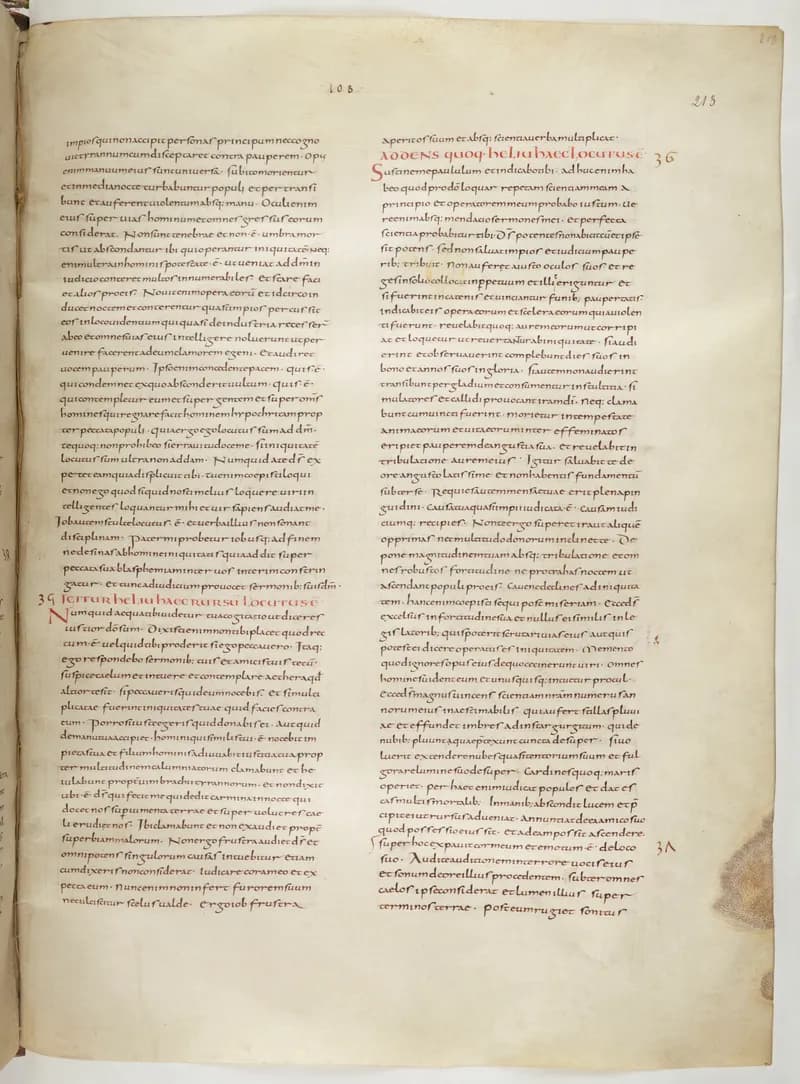 108
213
impiosqui non accipit personas principum nec cogno
uit tyrannum cum disceptaret contra pauperem · Opus
enim manuum eius sunt uniuersi · subito morientur
et in media nocte turbabuntur populi et pertransi
bunt et auferent uiolentum absq; manu · Oculi enim
eius super uias hominum et omnes gressus eorum
considerat · Non sunt tenebrae et non · ē · umbra mor
tis ut abscondantur ibi qui operantur iniquitatē Neq:
enim ultra in hominis potestate · ē · ut ueniat ad dm̄ in
iudicio conteret multos innumerabiles · Et stare faci
et alios pro eis · Nouit enim opera eorū et idcirco in
ducet noctem et conterentur quasi impios percussit
eos in loco uidentium qui quasi de industria recesserȳ
ab eo et omnes uias eius intellegere noluerunt ut per
uenire facerent ad eum clamorem egeni · Et audiret
uocem pauperum · Ipso enim concedente pacem · quis ē ·
qui condemnet ex quo absconderit uultum · quis · ē ·
qui contempletur eum et super gentem et super oms̄
homines qui regnare facit hominem hypochritam prop
ter peccata populi · Quia ergo ego locutus sum ad dm̄ ·
te quoq; non prohibeo si erraui tu doce me · si iniquitatē
locutus sum ultra non addam · Numquid a te ds̄ ex
petet eam quia displicuit tibi · tu enim coepisti loqui
et non ego quod si quid nosti melius loquere uiri in
tellegentes loquantur mihi et uir sapiens audiat me ·
Iob autem stulte locutus · ē · et uerba illius non sonant
disciplinam · Pater mi probetur iob usq; ad finem
ne desinas ab homine iniquitatis quia addit super
peccata sua blasphemiam inter nos interim constrin
gatur · Et tunc ad iudicium prouocet sermonib; suis dm̄ ·
35 IGITUR HELIU HAEC RURSŪ LOCUTUS Ē
Numquid aequa tibi uidetur tua cogitatio ut diceres
iustior do sum · Dixisti enim non tibi placet quod rec
tum · ē · uel quid tibi proderit si ego peccauero · Itaq;
ego respondebo sermonib; tuis et amicis tuis tecū ·
suspice caelum et intuere et contemplare aethera qđ
altior te sit · si peccaueris quid ei nocebis · Et si multi
plicatae fuerint iniquitates tuae quid facies contra
eum · Porro si iuste egeris quid donabis ei · Aut quid
de manu tua accipiet · homini qui similis tui · ē · nocebit im
pietas tua et filium hominis adiuuabit iustitia tua prop
ter multitudinem calumniatorum clamabunt et he
iulabunt propter uim brachii tyrannorum · Et non dixit
ubi · ē · ds̄ qui fecit me qui dedit carmina in nocte qui
docet nos super iumenta terrae et super uolucres cae
li erudiet nos · Ibi clamabunt et non exaudiet propt̄
superbiam malorum · Non ergo frustra audiet ds̄ et
omnipotens singulorum causas intuebitur etiam
cum dixeris non considerat · Iudicare coram eo et ex
pecta eum · nunc enim non infert furorem suum
nec ulciscitur scelus ualde · Ergo iob frustra
aperit os suum et absq; scientia uerba multiplicat ·
ADDENS QUOQ · HELIU HAEC LOCUTUS Ē 36
Sustine me paululum et indicabo tibi · adhuc enim ha
beo quod pro do loquar repetam scientiam meam a
principio et operatorem meum probabo iustum · Ue
re enim absq; mendacio sermones mei · et perfecta
scientia probabitur tibi · Ds̄ potentes non abicit cū et ipse
sit potens · sed non saluat impios et iudicium paupe
rib; tribuit · Non auferet a iusto oculos suos et re
ges in solio collocat in perpetuum et illi eriguntur et
si fuerint in catenis et uinciantur funib; paupertatis
indicabit eis opera eorum et scelera eorum quia uiolen
ti fuerunt · reuelabit quoq; aurem eorum ut corripi
at et loquetur ut reuertantur ab iniquitate · si audi
erint et obseruauerint complebunt dies suos in
bono et annos suos in gloria · si autem non audierint
transibunt per gladium et consumentur in stultitia · si
mulatores et callidi prouocant iram dī · Neq; clama
bunt cum uincti fuerint · morietur in tempestate
anima eorum et uita eorum inter effeminatos
eripiet pauperem de angustia sua · Et reuelabit in
tribulatione aurem eius · Igitur saluabit te de
ore angusto latissime · et non habentis fundamentū
subter se · Requies autem mensae tuae erit plena pin
guidini · causa tua quasi impii iudicata · ē · causam iudi
ciumq; recipies · Non te ergo superet ira ut aliquē
opprimas nec multitudo donorum inclinet te · De
pone magnitudinem tuam absq; tribulatione et om
nes robustos fortitudine ne protrahas noctem ut
ascendant populi pro eis · Caue ne declines ad iniquita
tem · hanc enim coepisti sequi post miseriam · Ecce ds̄
excelsus in fortitudine sua et nullus ei similis in le
gislatorib; quis poterit scrutari uias eius aut quis
potest ei dicere operatus es iniquitatem · Memento
quod ignores opus eius de quo cecinerunt uiri · omnes
homines uident eum et unusquisq; intuetur procul ·
Ecce ds̄ magnus uincens scientiam nr̄am numerus an
norum eius inaestimabilis · qui aufert stillas pluui
ae et effundet imbres ad instar gurgitum · qui de
nubib; pluunt quae praetexunt cuncta desuper · si uo
luerit extendere nubes quasi tentorium suum et ful
gorare lumine suo desuper · Cardines quoq; maris
operiet · per haec enim iudicat populos et dat es
cas multis mortalib; In manib; abscondit lucem et p̄
cipit ei ut rursus adueniat · Annuntiat de ea amico suo
quod possessio eius sit · et ad eam possit ascendere ·
super hoc expauit cor meum et emotum · ē · de loco 37
suo · Audite auditionem in terrore uocis eius
et sonum de ore illius procedentem · subter omnes
caelos ipse considerat et lumen illius super
terminos terrae · Post eum rugiet sonitus